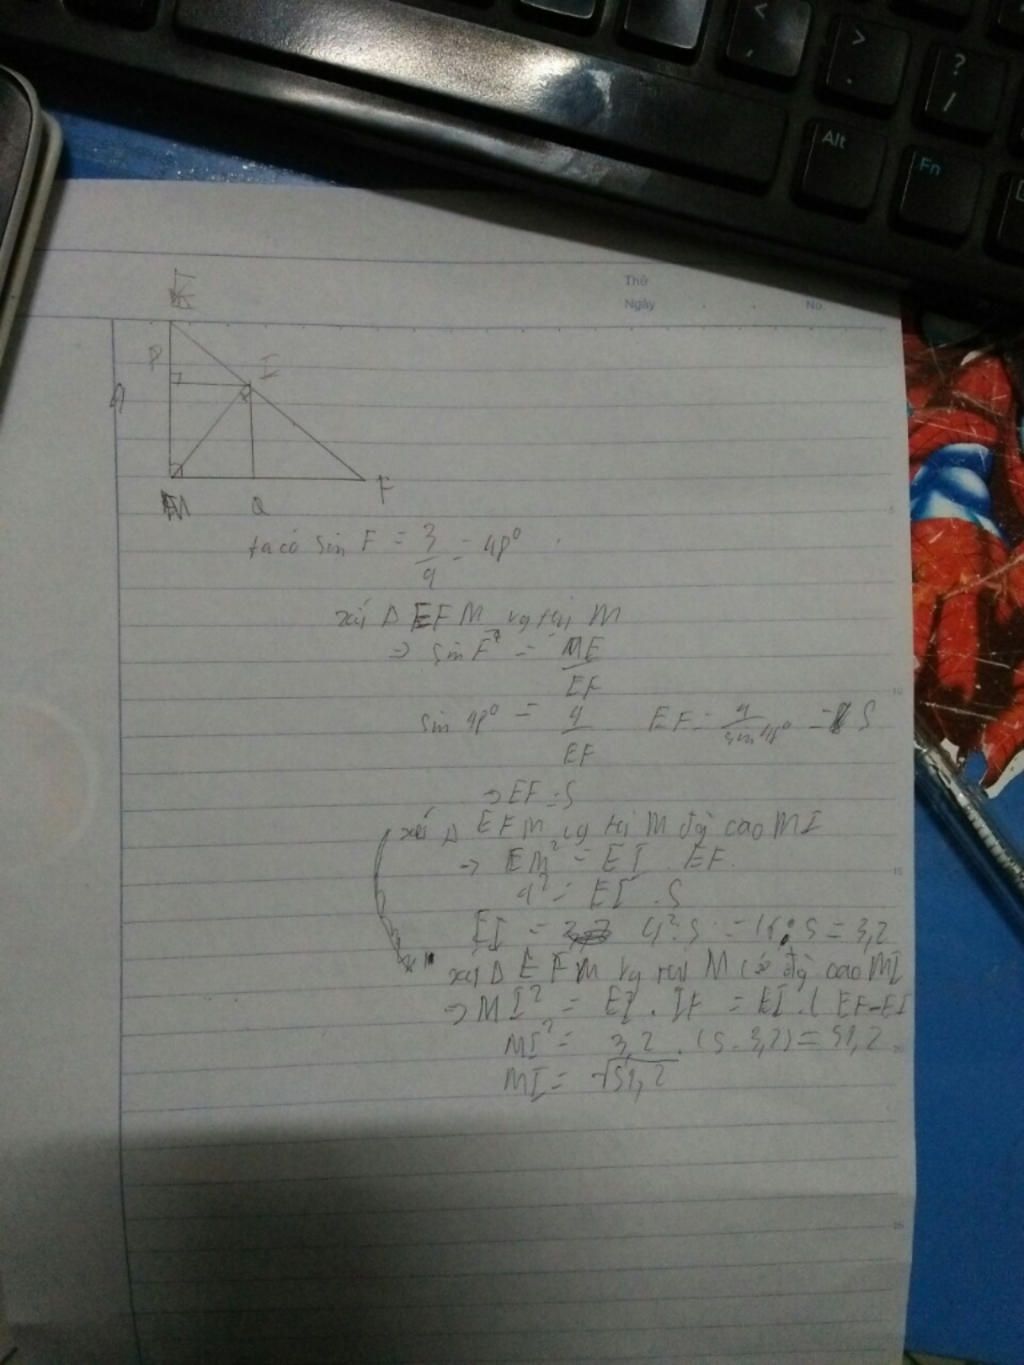 <
,
>
.
?
/
Alt
Fn
Thứ
Ngày
No.
E
P
I
A
M
Q
F
5
ta có sin F = 3/4 = 48°
xét Δ EFM vg tại M
=> sin F = ME/EF
10
sin 48° = 4/EF EF = 4/sin 48° = 5
=> EF = 5
xét Δ EFM vg tại M đg cao MI
=> EM² = EI . EF
15
4² = EI . 5
EI = 4² : 5 = 16 : 5 = 3,2
xét Δ EFM vg tại M có đg cao MI
=> MI² = EI . IF = EI . ( EF - EI
MI² = 3,2 . (5 - 3,2) = 51,2
20
MI = √51,2
25